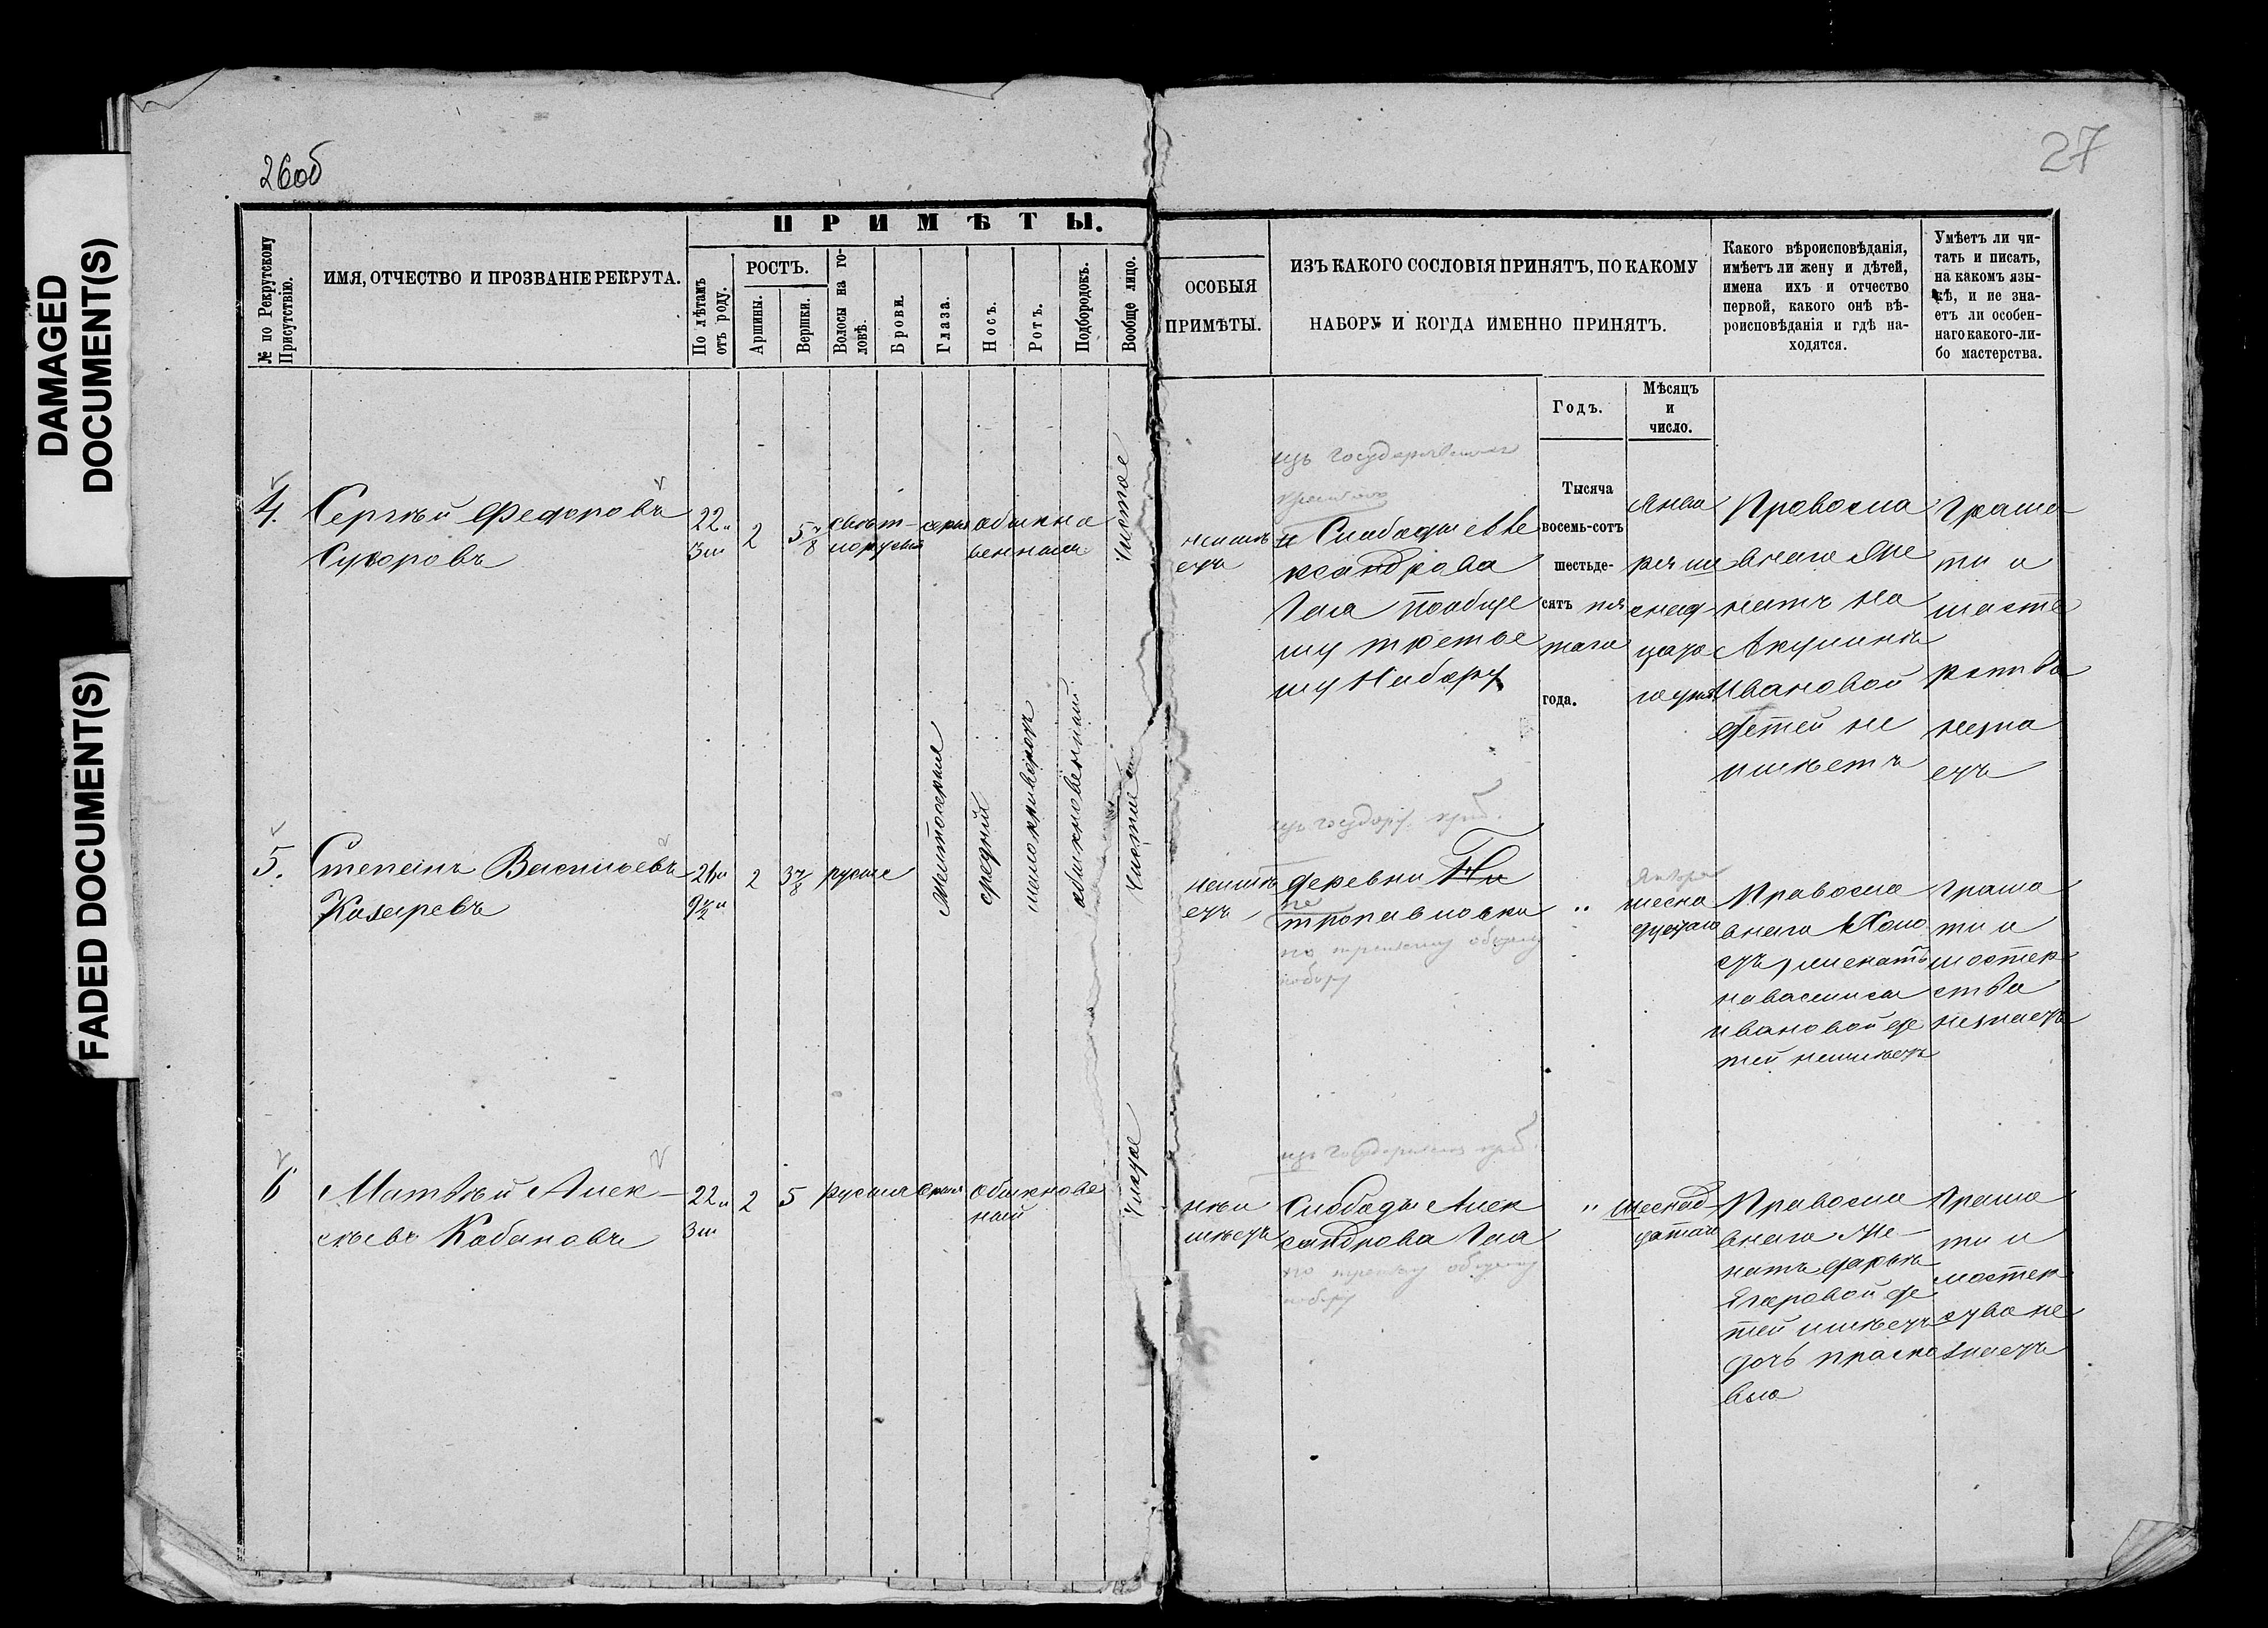 DAMAGED
DOCUMENT(S)
FADED DOCUMENT(S)
26об
27
ПРИМѢТЫ.
№ по Рекрутскому
Присутствію.
ИМЯ, ОТЧЕСТВО И ПРОЗВАНІЕ РЕКРУТА.
По лѣтамъ
отъ роду.
РОСТЪ.
Аршины.
Вершки.
Волосы на го-
ловѣ.
Брови.
Глаза.
Носъ.
Ротъ.
Подбородокъ.
Вообще лицо.
ОСОБЫЯ
ПРИМѢТЫ.
ИЗЪ КАКОГО СОСЛОВІЯ ПРИНЯТЪ, ПО КАКОМУ
НАБОРУ И КОГДА ИМЕННО ПРИНЯТЪ.
Какого вѣроисповѣданія,
имѣетъ ли жену и дѣтей,
имена ихъ и отчество
первой, какого онѣ вѣ-
роисповѣданія и гдѣ на-
ходятся.
Умѣетъ ли чи-
тать и писать,
на какомъ язы-
кѣ, и не зна-
етъ ли особен-
наго какого-ли-
бо мастерства.
Годъ.
Мѣсяцъ
и
число.
4.
Сергѣй Федоровъ
Суворовъ
22
3м
2
5 7/8
свѣт-
лорусыя
серыя
обыкно
венныя
Чистое
неимѣ
етъ
изъ государствен
Слободы Але
ксандрова
Гая пообще
му третье
му Набору
Тысяча
восемь-сотъ
шестьде-
сятъ пя
таго
года.
Янва
ря ше
снад
цаго
Правосла
внаго Же
натъ на
Акулинѣ
Ивановой
Детей не
имѣетъ
Грамо
ти и
масте
рства
незна
етъ
5.
Степанъ Васильевъ
Козыревъ
21
9 1/2
2
3 7/8
русые
средній
обыкновенный
неимѣ
етъ
изъ государ. крест.
деревни
пе
тропавловки
по третьему общему
набору
"
Января
шесна
дцатаго
Правосла
внаго Холо
ивановой де
тей неимѣетъ
Грама
ти и
мостер
ства
незнаетъ
6
Матвѣй Алек-
сѣевъ Кабановъ
22
3м
2
5
русыя
серыя
обыкнове
ный
неи
мѣетъ
Слободы Алек
сандрова Гая
по третьему общему
набору
"
шеснад
цатаго
Правосла
внаго Же-
натъ дарья
Егаровой де
тей имѣетъ
дочь праско
вью
Грамо
ти и
мостер
ства не
знаетъ